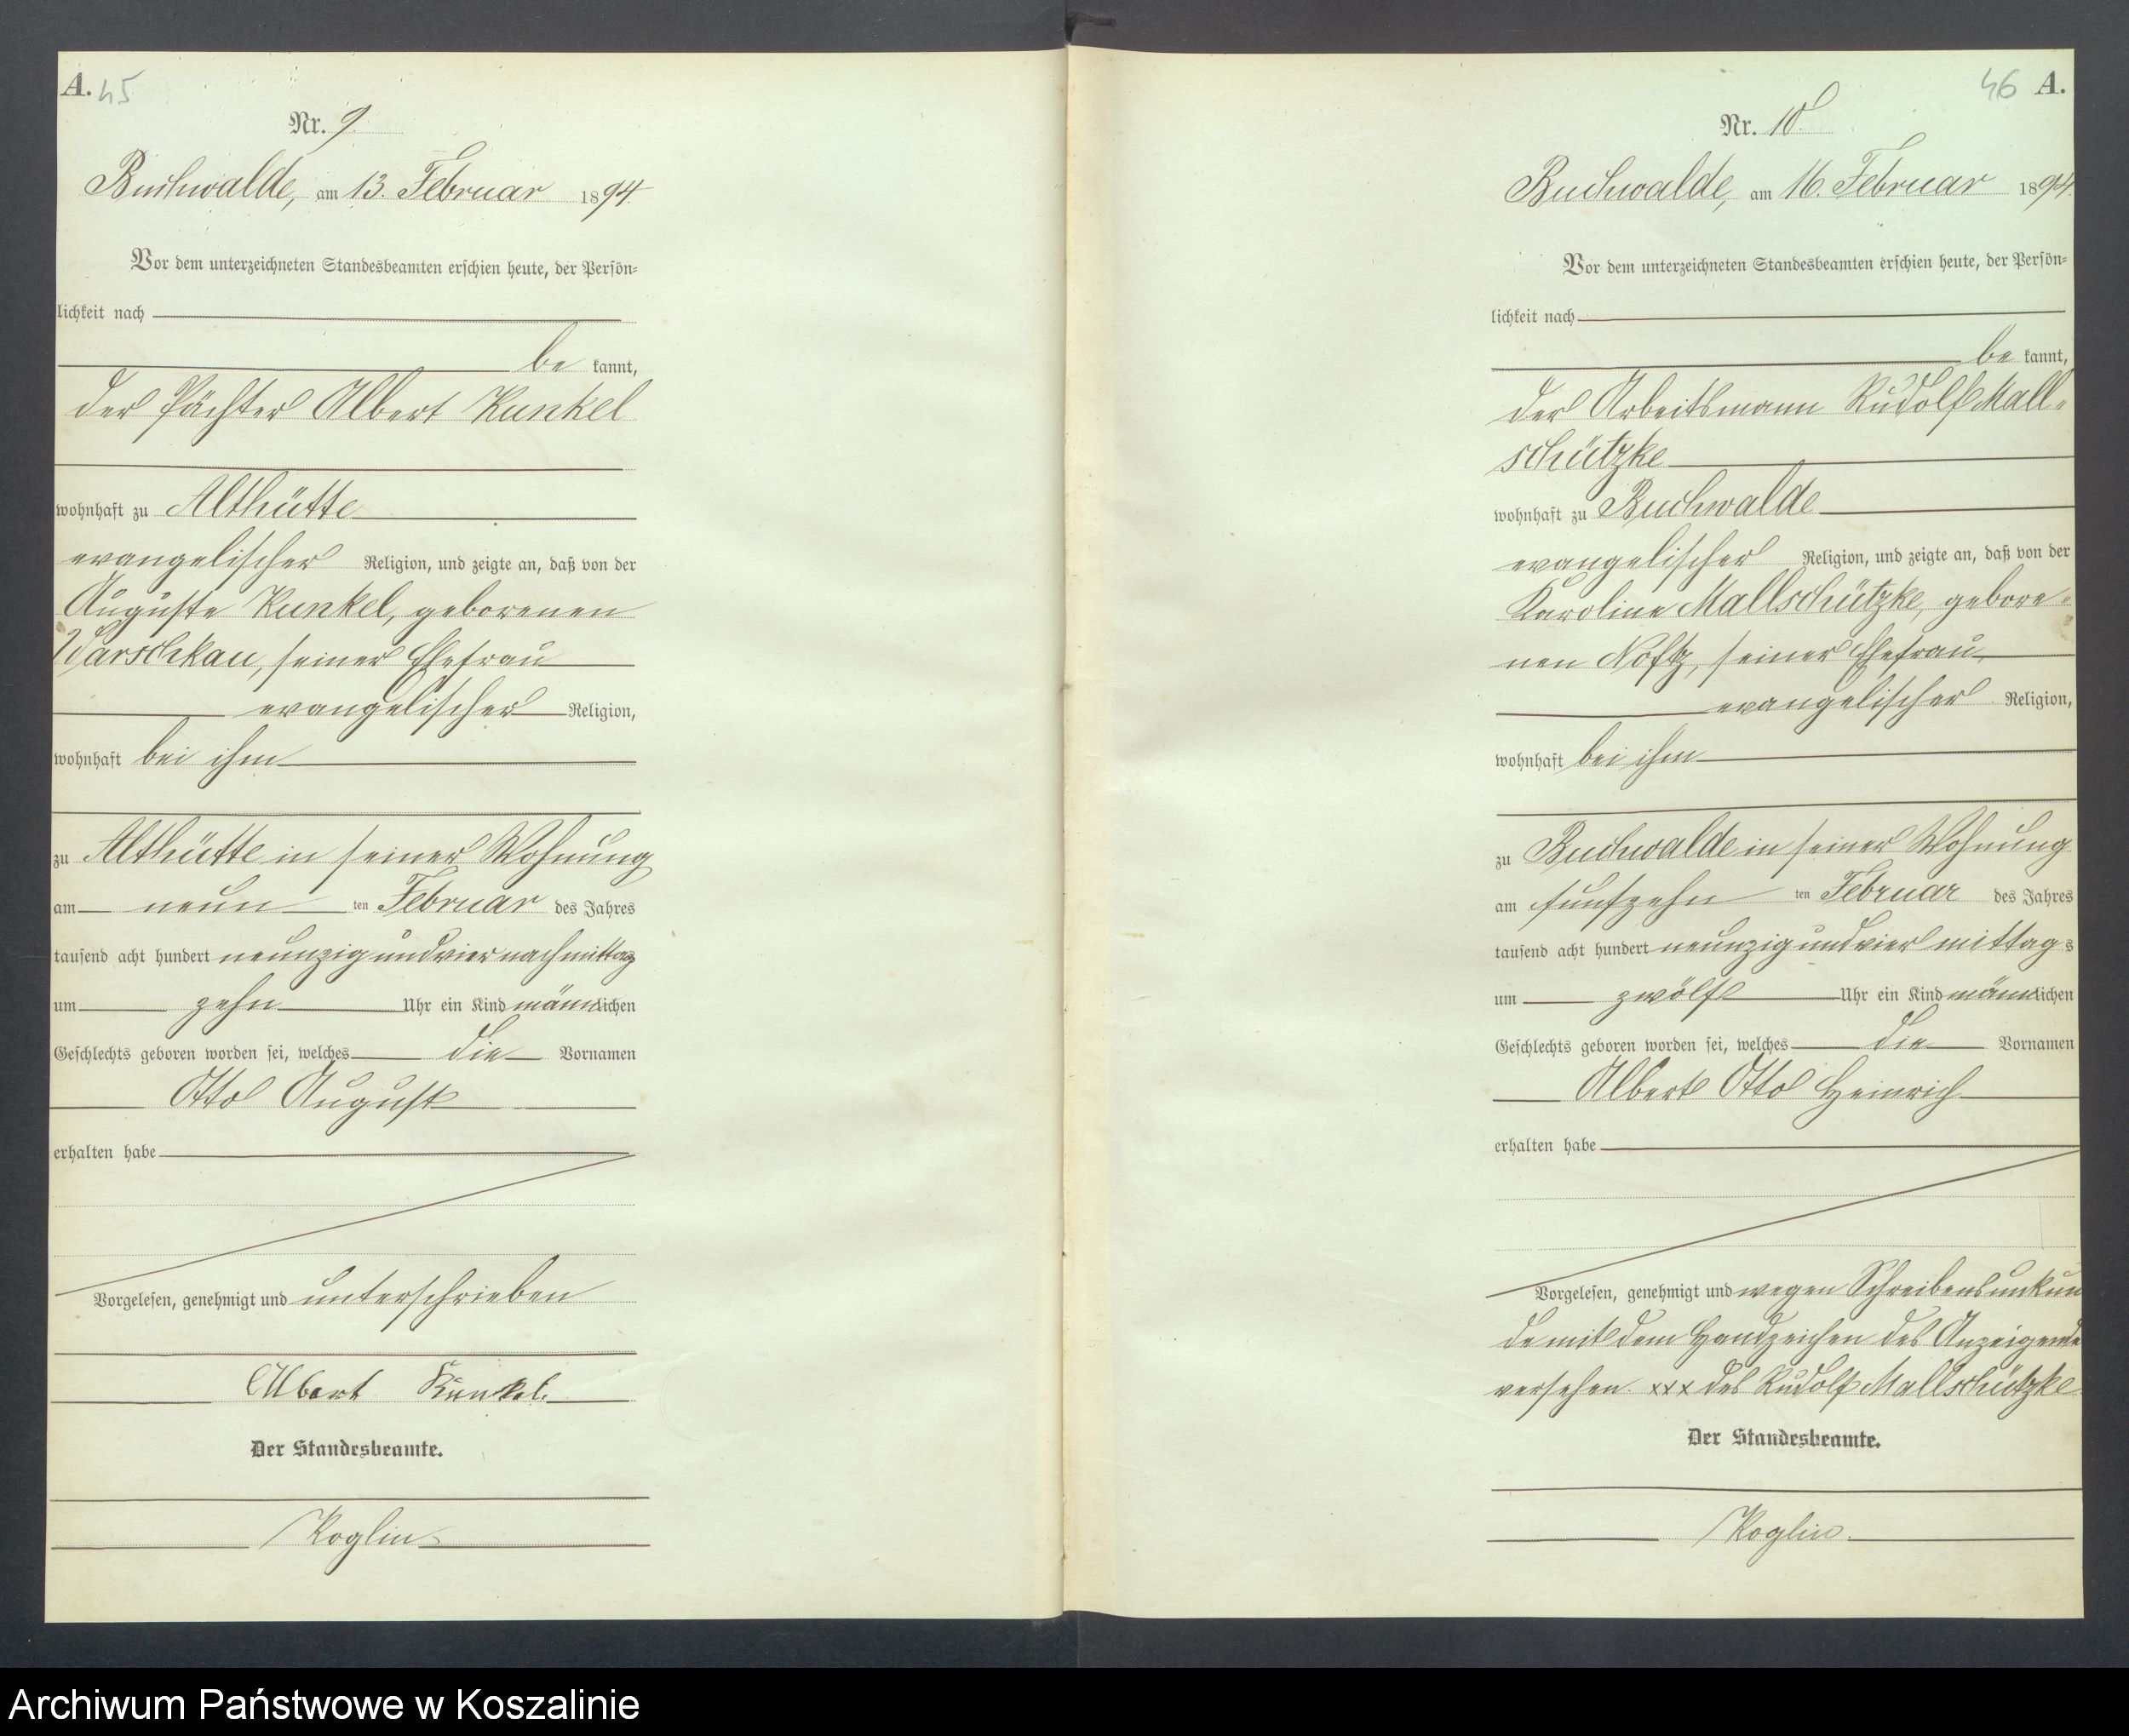 A. 45
Nr. 9.
Buchwalde, am 13. Februar 1894.
Vor dem unterzeichneten Standesbeamten erschien heute, der Persön-
lichkeit nach
be kannt,
der Pächter Albert Kunkel
wohnhaft zu Althütte
evangelischer Religion, und zeigte an, daß von der
Auguste Kunkel, geborenen
Warschkau, seiner Ehefrau
evangelischer Religion,
wohnhaft bei ihm
zu Althütte in seiner Wohnung
am neun ten Februar des Jahres
tausend acht hundert neunzig und vier nachmittags
um zehn Uhr ein Kind männlichen
Geschlechts geboren worden sei, welches die Vornamen
Otto August
erhalten habe
Vorgelesen, genehmigt und unterschrieben
Albert Kunkel.
Der Standesbeamte.
Koglin
46 A.
Nr. 10.
Buchwalde, am 16. Februar 1894.
Vor dem unterzeichneten Standesbeamten erschien heute, der Persön-
lichkeit nach
be kannt,
der Arbeitsmann Rudolf Mall-
schützke
wohnhaft zu Buchwalde
evangelischer Religion, und zeigte an, daß von der
Karoline Mallschützke, gebore-
nen Noftz, seiner Ehefrau,
evangelischer Religion,
wohnhaft bei ihm
zu Buchwalde in seiner Wohnung
am fünfzehn ten Februar des Jahres
tausend acht hundert neunzig und vier mittags
um zwölf Uhr ein Kind männlichen
Geschlechts geboren worden sei, welches die Vornamen
Albert Otto Heinrich
erhalten habe
Vorgelesen, genehmigt und wegen Schreibensunkun
de mit dem Handzeichen des Anzeigende
versehen. xxx des Rudolf Mallschützke
Der Standesbeamte.
Koglin.
Archiwum Państwowe w Koszalinie